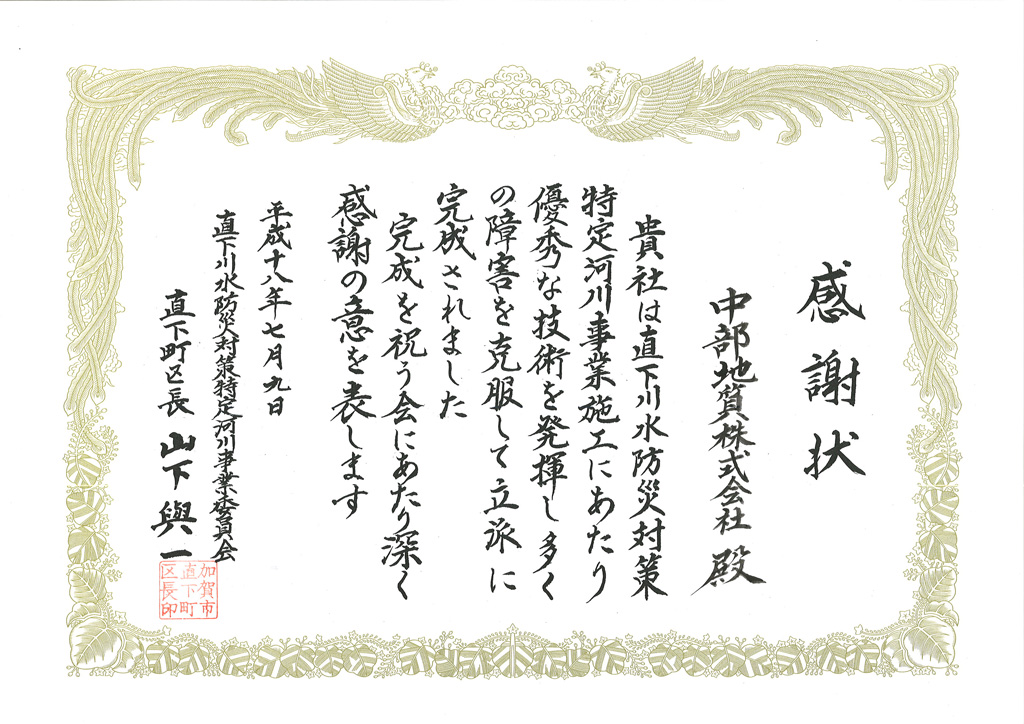 感謝状
中部地質株式会社 殿
貴社は直下川水防災対策
特定河川事業施工にあたり
優秀な技術を発揮し多く
の障害を克服して立派に
完成されました
完成を祝う会にあたり深く
感謝の意を表します
平成十八年七月九日
直下川水防災対策特定河川事業委員会
直下町区長 山下與一
加賀市
直下町
区長印